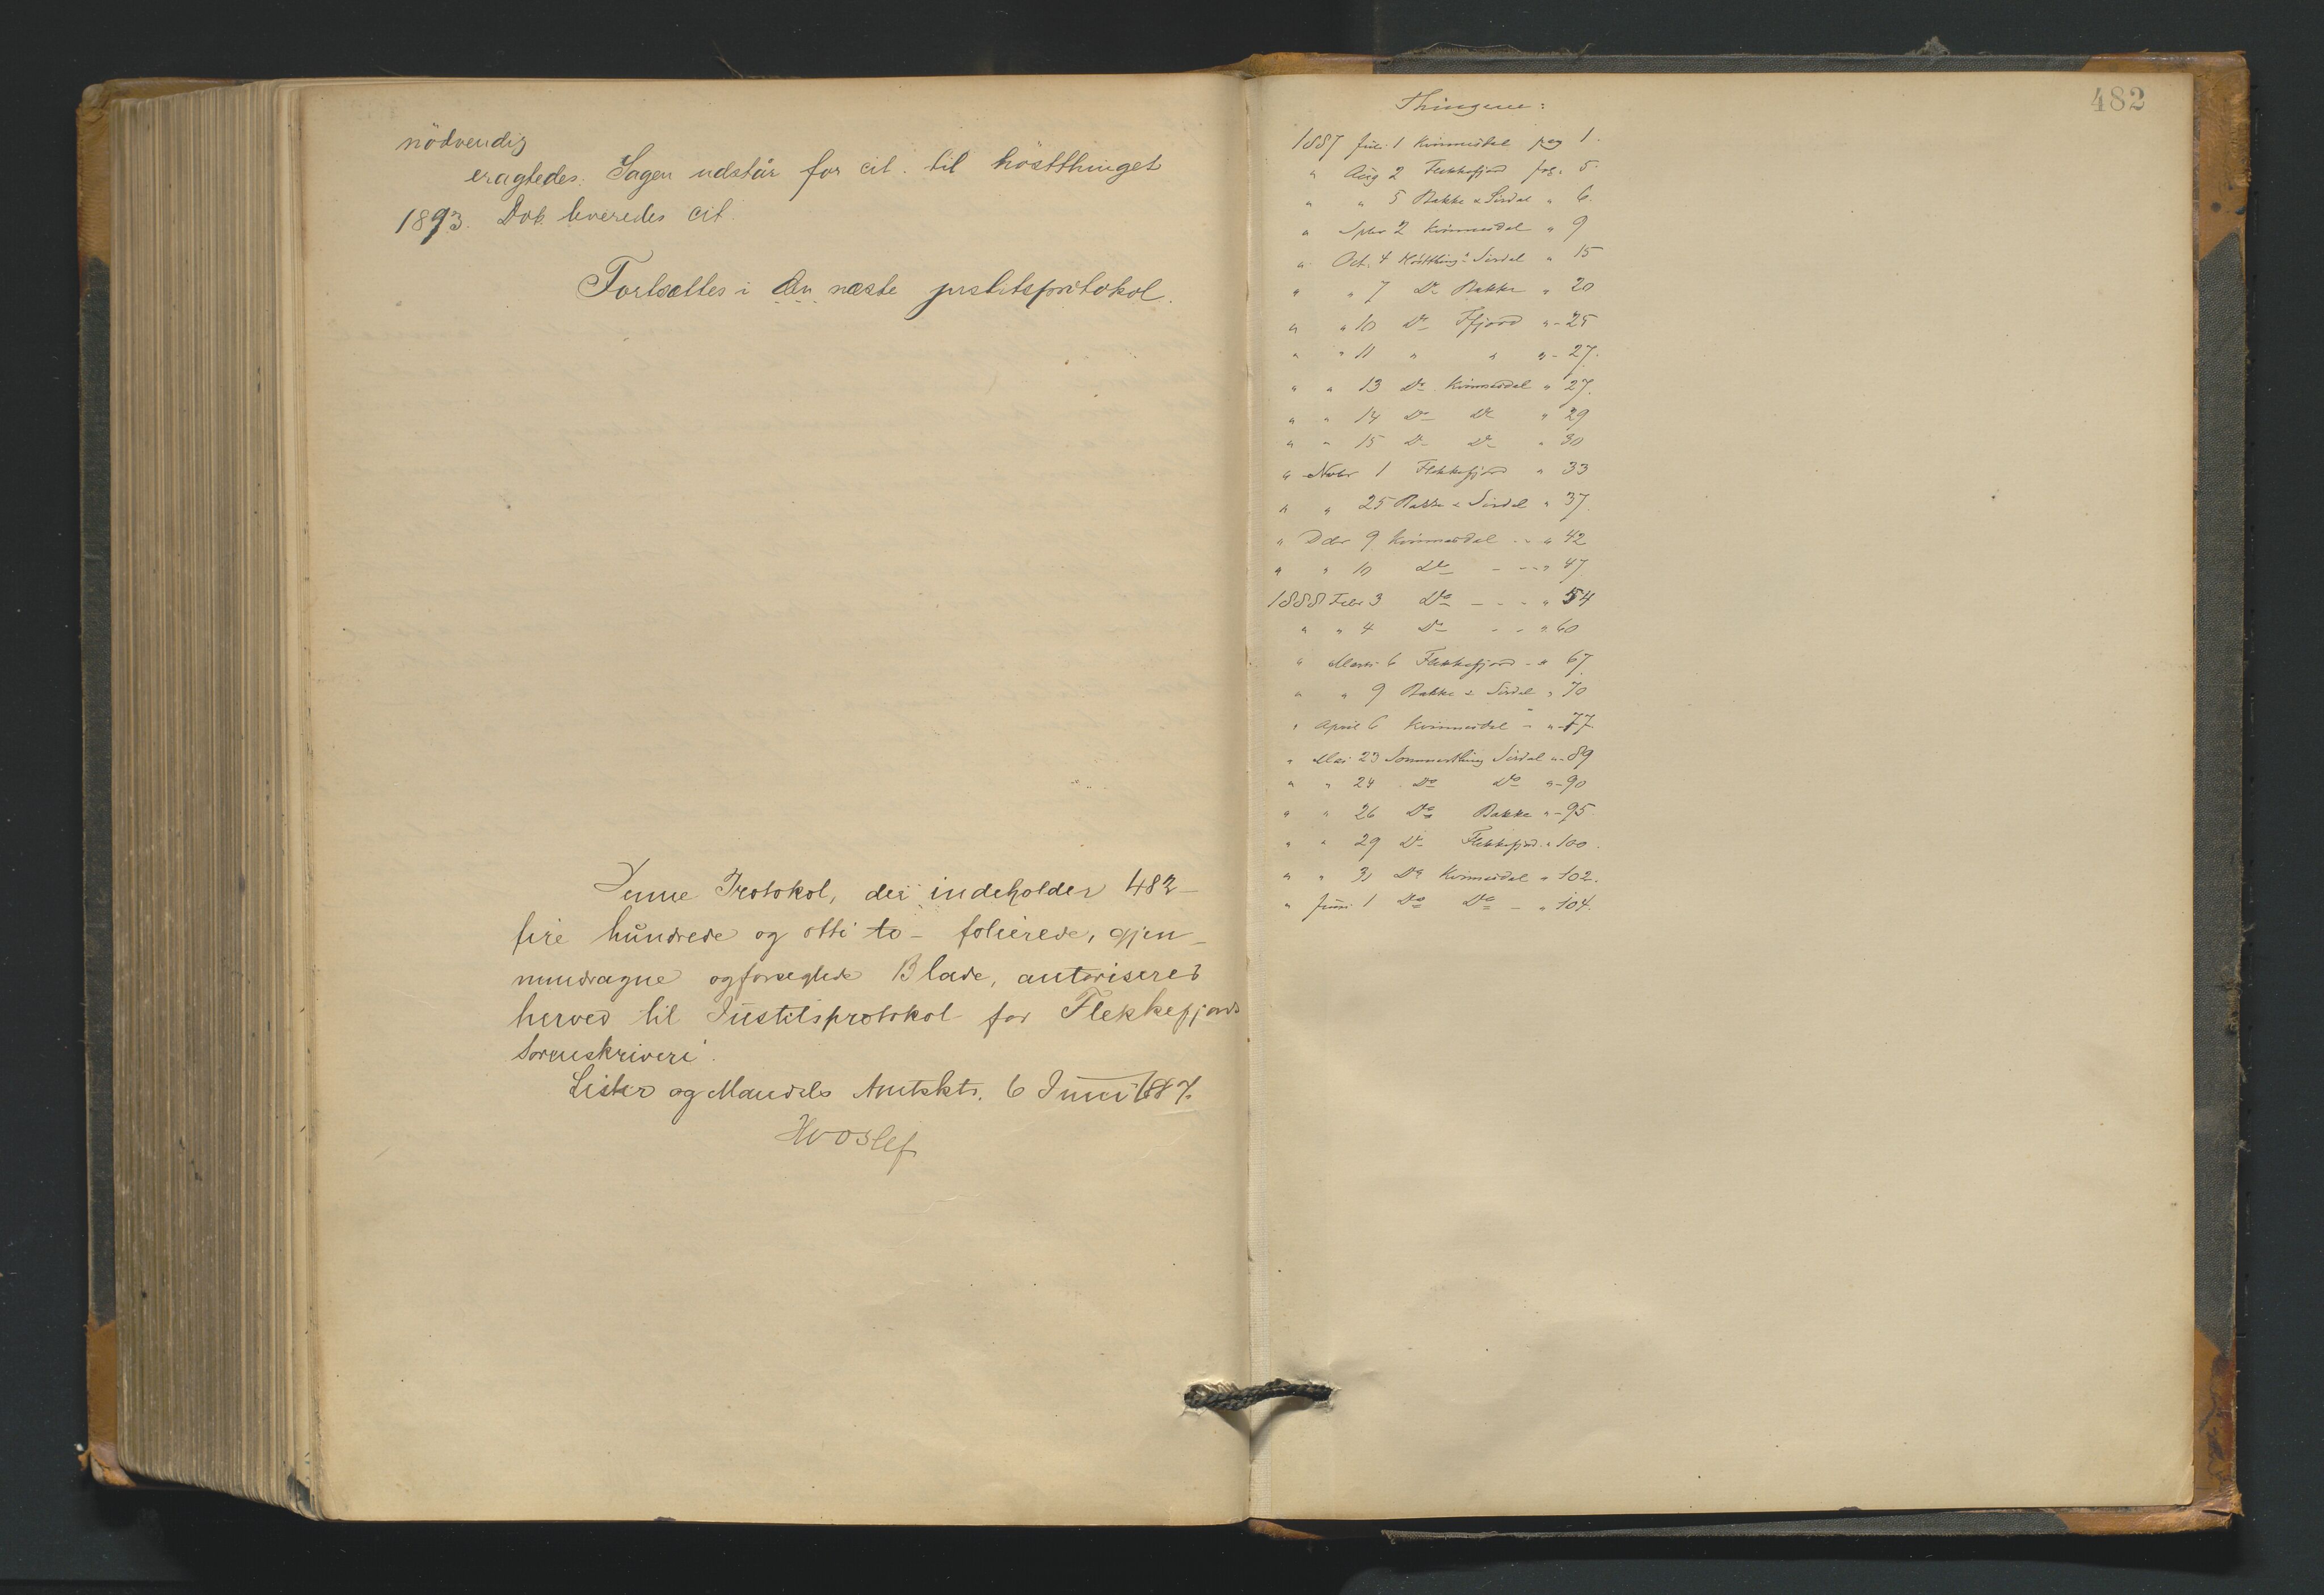 nödvendig
eragtedes. Sagen udstår for cit. til höstthinget
1893. Dok. leveredes cit.
Fortsættes i den næste justitsprotokol.
Denne Protokol, der indeholder 482 –
fire hundrede og otti to – folierede, gjen-
nemdragne og forseglede Blade, autoriseres
herved til Justitsprotokol for Flekkefjords
Sorenskriveri.
Lister og Mandals Amtskts. 6 Juni 1887.
Hvoslef
482
Thingene:
1887 Juli 1 Kvinnesdal pag 1.
" Aug 2 Flekkefjord pag. 5.
" " 5 Bakke & Sirdal " 6.
" Sptbr 2 Kvinnesdal " 9
" Oct. 4 Höstthing: Sirdal " 15
" " 7 Do Bakke " 20
" " 10 Do Ffjord " - 25
" " 11 " " " - 27.
" " 13 Do Kvinnesdal " 27.
" " 14 Do Do " 29
" " 15 Do Do " 30
" Novbr 1 Flekkefjord " 33
" " 25 Bakke & Sirdal " 37.
" Dcbr 9 Kvinnesdal - - " 42
" " 10 Do - - - " 47.
1888 Febr 3 Do - - - " 54
" " 4 Do - - " 60
" Marts 6 Flekkefjord - " 67.
" " 9 Bakke & Sirdal " 70
" April 6 Kvinnesdal - " - 77.
" Mai 23 Sommerthing Sirdal " - 89
" " 24 Do Do " - 90
" " 26 Do Bakke " - 95
" " 29 Do Flekkefjord " 100.
" " 31 Do Kvinnesdal " 102.
" Juni 1 Do Do - " 104.